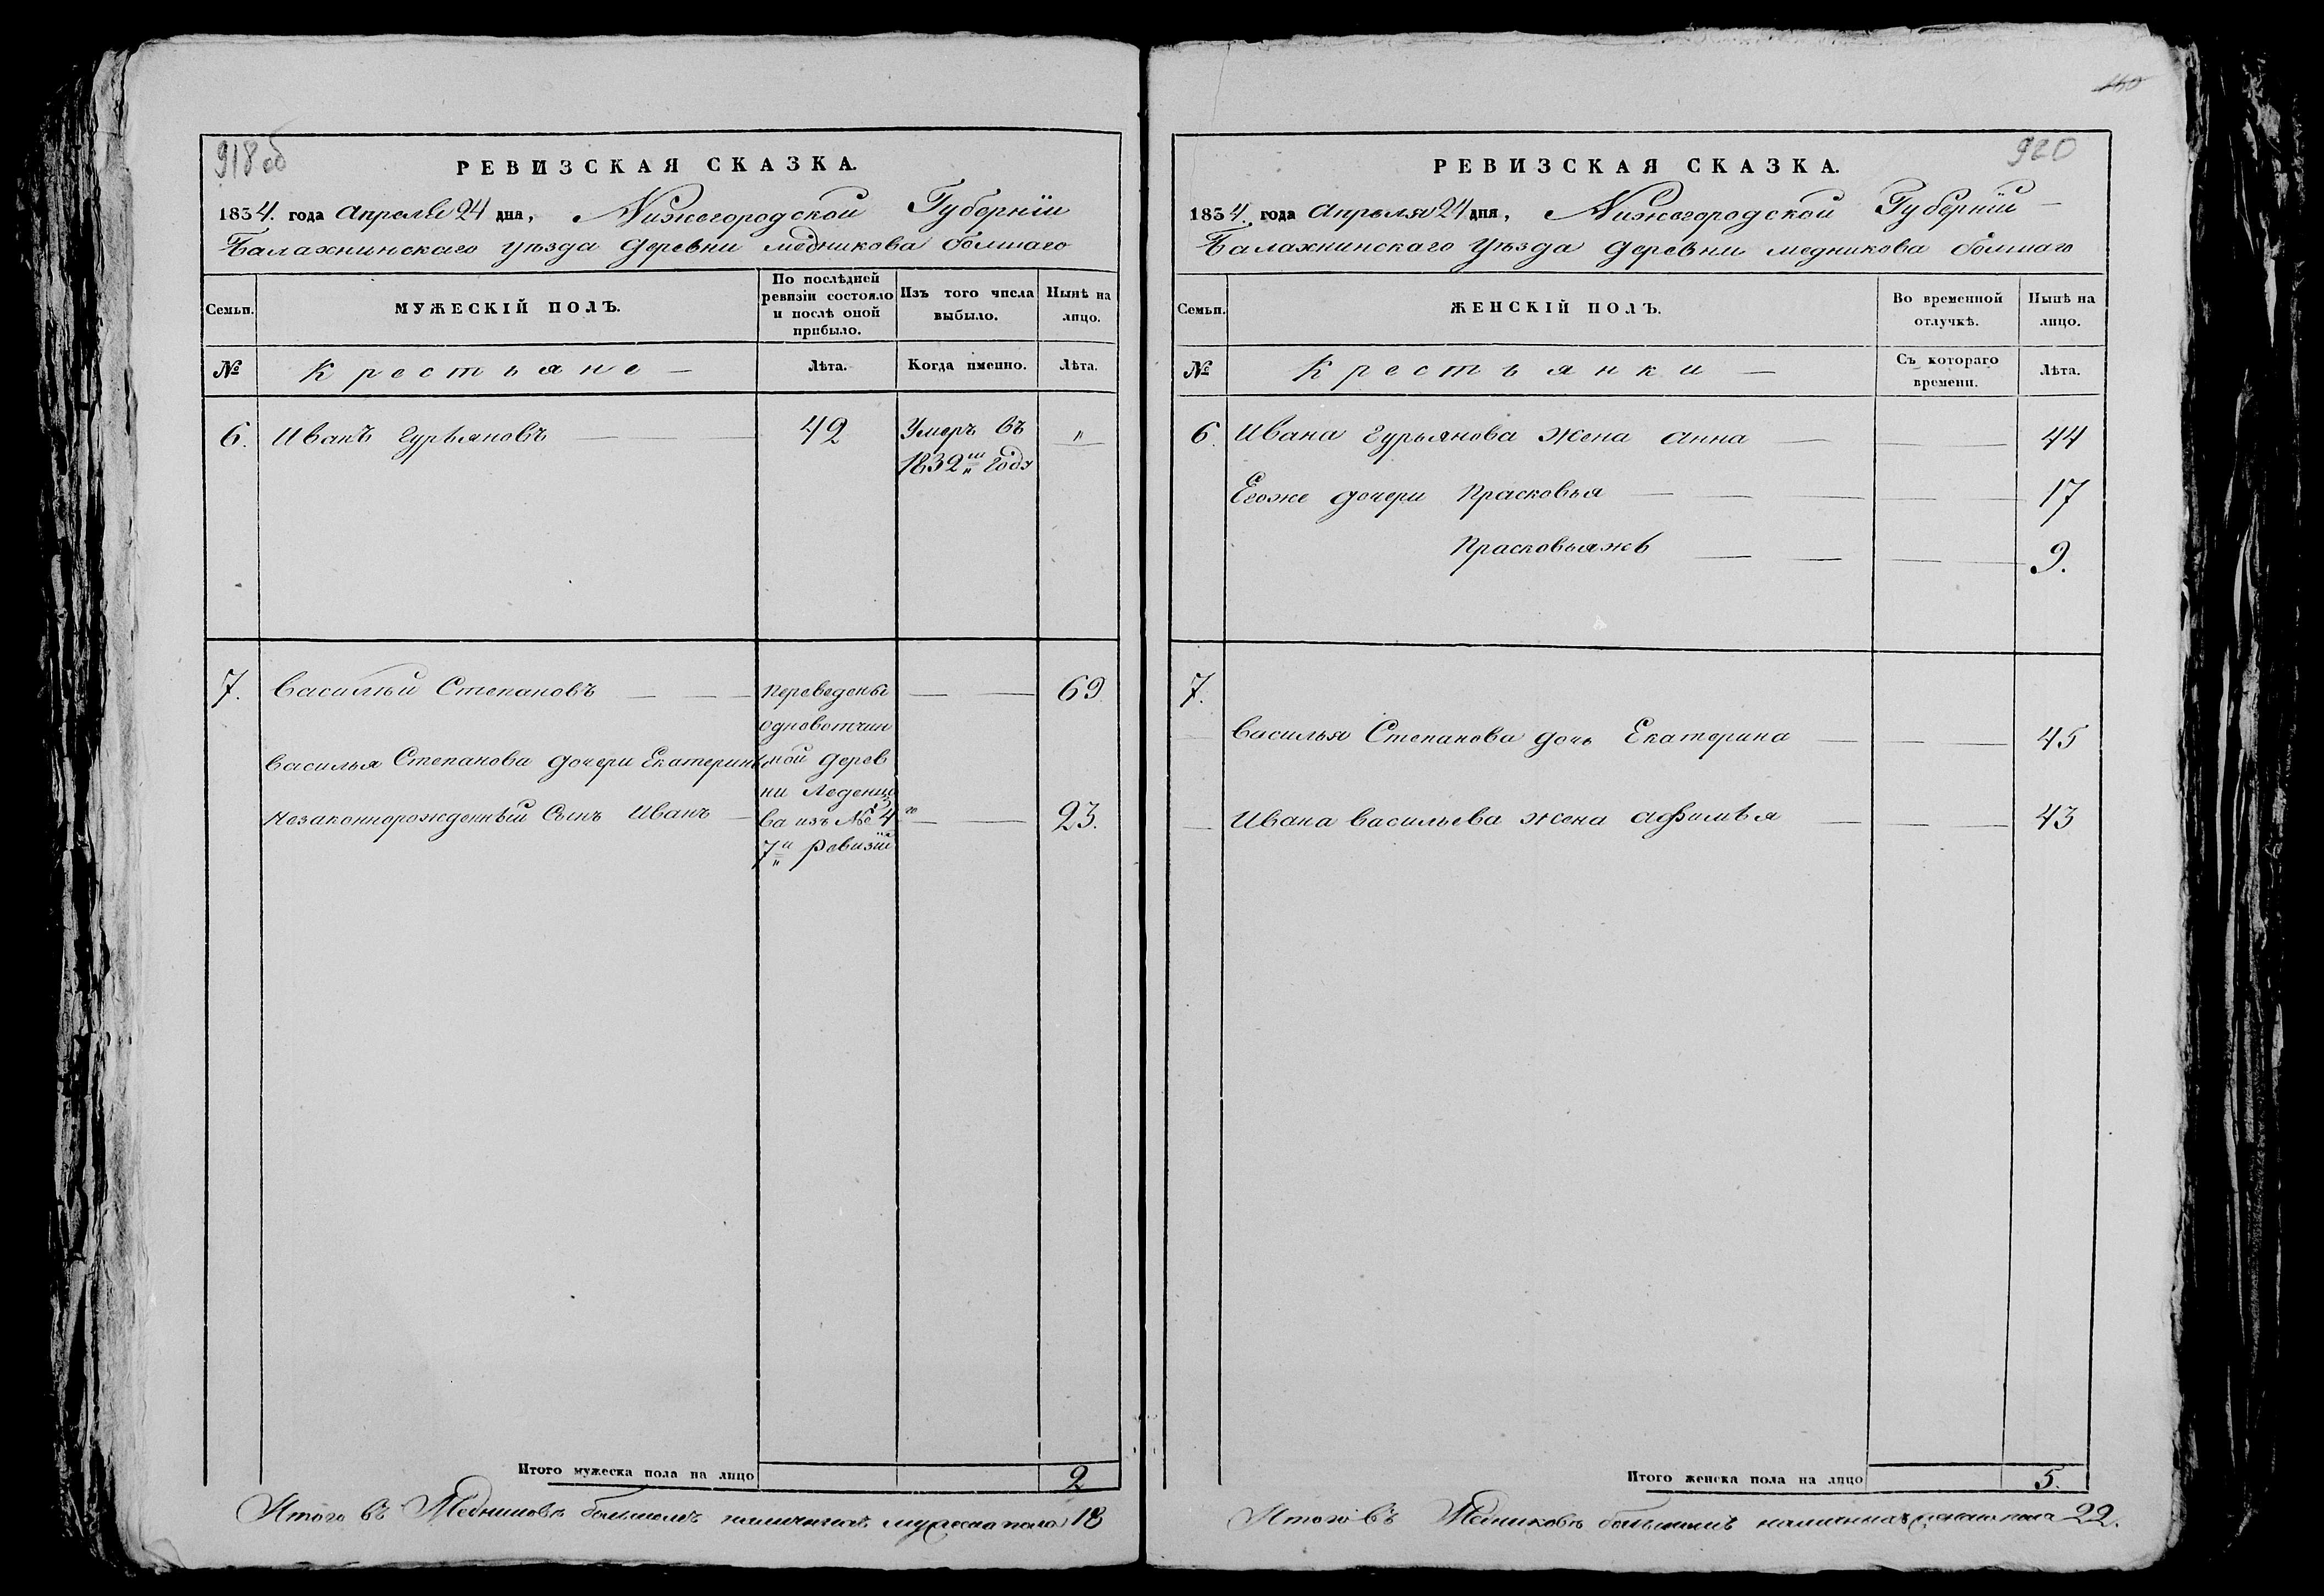 918 об
РЕВИЗСКАЯ СКАЗКА.
1834. года Апреля 24 дня, Нижегородской Губернiи
Балахнинскаго уѣзда деревни медникова болшаго
Семьи.
МУЖЕСКIЙ ПОЛЪ.
По послѣдней ревизiи состояло и послѣ оной прибыло.
Изъ того числа выбыло.
Нынѣ на лицо.
№
Крестьяне
Лѣта.
Когда именно.
Лѣта.
6. Иванъ Гурьяновъ 42 Умеръ въ "
1832м году
7. Василѣй Степановъ переведены 69
одновотчин
Василья Степанова дочери Екатерины ной дерев
ни Леденцо
Незаконнорожденный сынъ Иванъ ва изъ № 4го 23.
7й ревизiи
Итого мужеска пола на лицо 2
Итого въ Медниковѣ большомъ наличныхъ мужеска пола 18
160
920
РЕВИЗСКАЯ СКАЗКА.
1834. года Апрѣля 24 дня, Нижегородской Губернiи
Балахнинскаго уѣзда деревни медникова болшаго
Семьи.
ЖЕНСКIЙ ПОЛЪ.
Во временной отлучкѣ.
Нынѣ на лицо.
№
Крестьянки
Съ котораго времени.
Лѣта.
6. Ивана Гурьянова жена анна 44
Егоже дочери Прасковья 17
Прасковьяжъ 9.
7.
Василья Степанова дочь Екатерина 45
Ивана Васильева жена афимѣя 43
Итого женска пола на лицо 5.
Итого въ Медниковѣ большомъ наличныхъ женска пола 22.